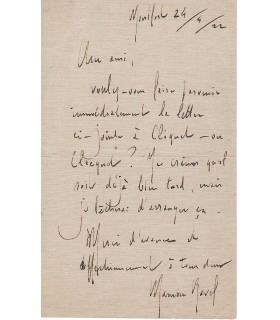 Montfort 24/4/22
Cher ami,
voulez-vous faire parvenir
immédiatement la lettre
ci-jointe à Clicquet – ou
Clocquet ? Je crains qu'il
soit déjà bien tard, mais
je tâcherai d'arranger ça.
Merci d'avance et
affectueusement à tous deux
Maurice Ravel